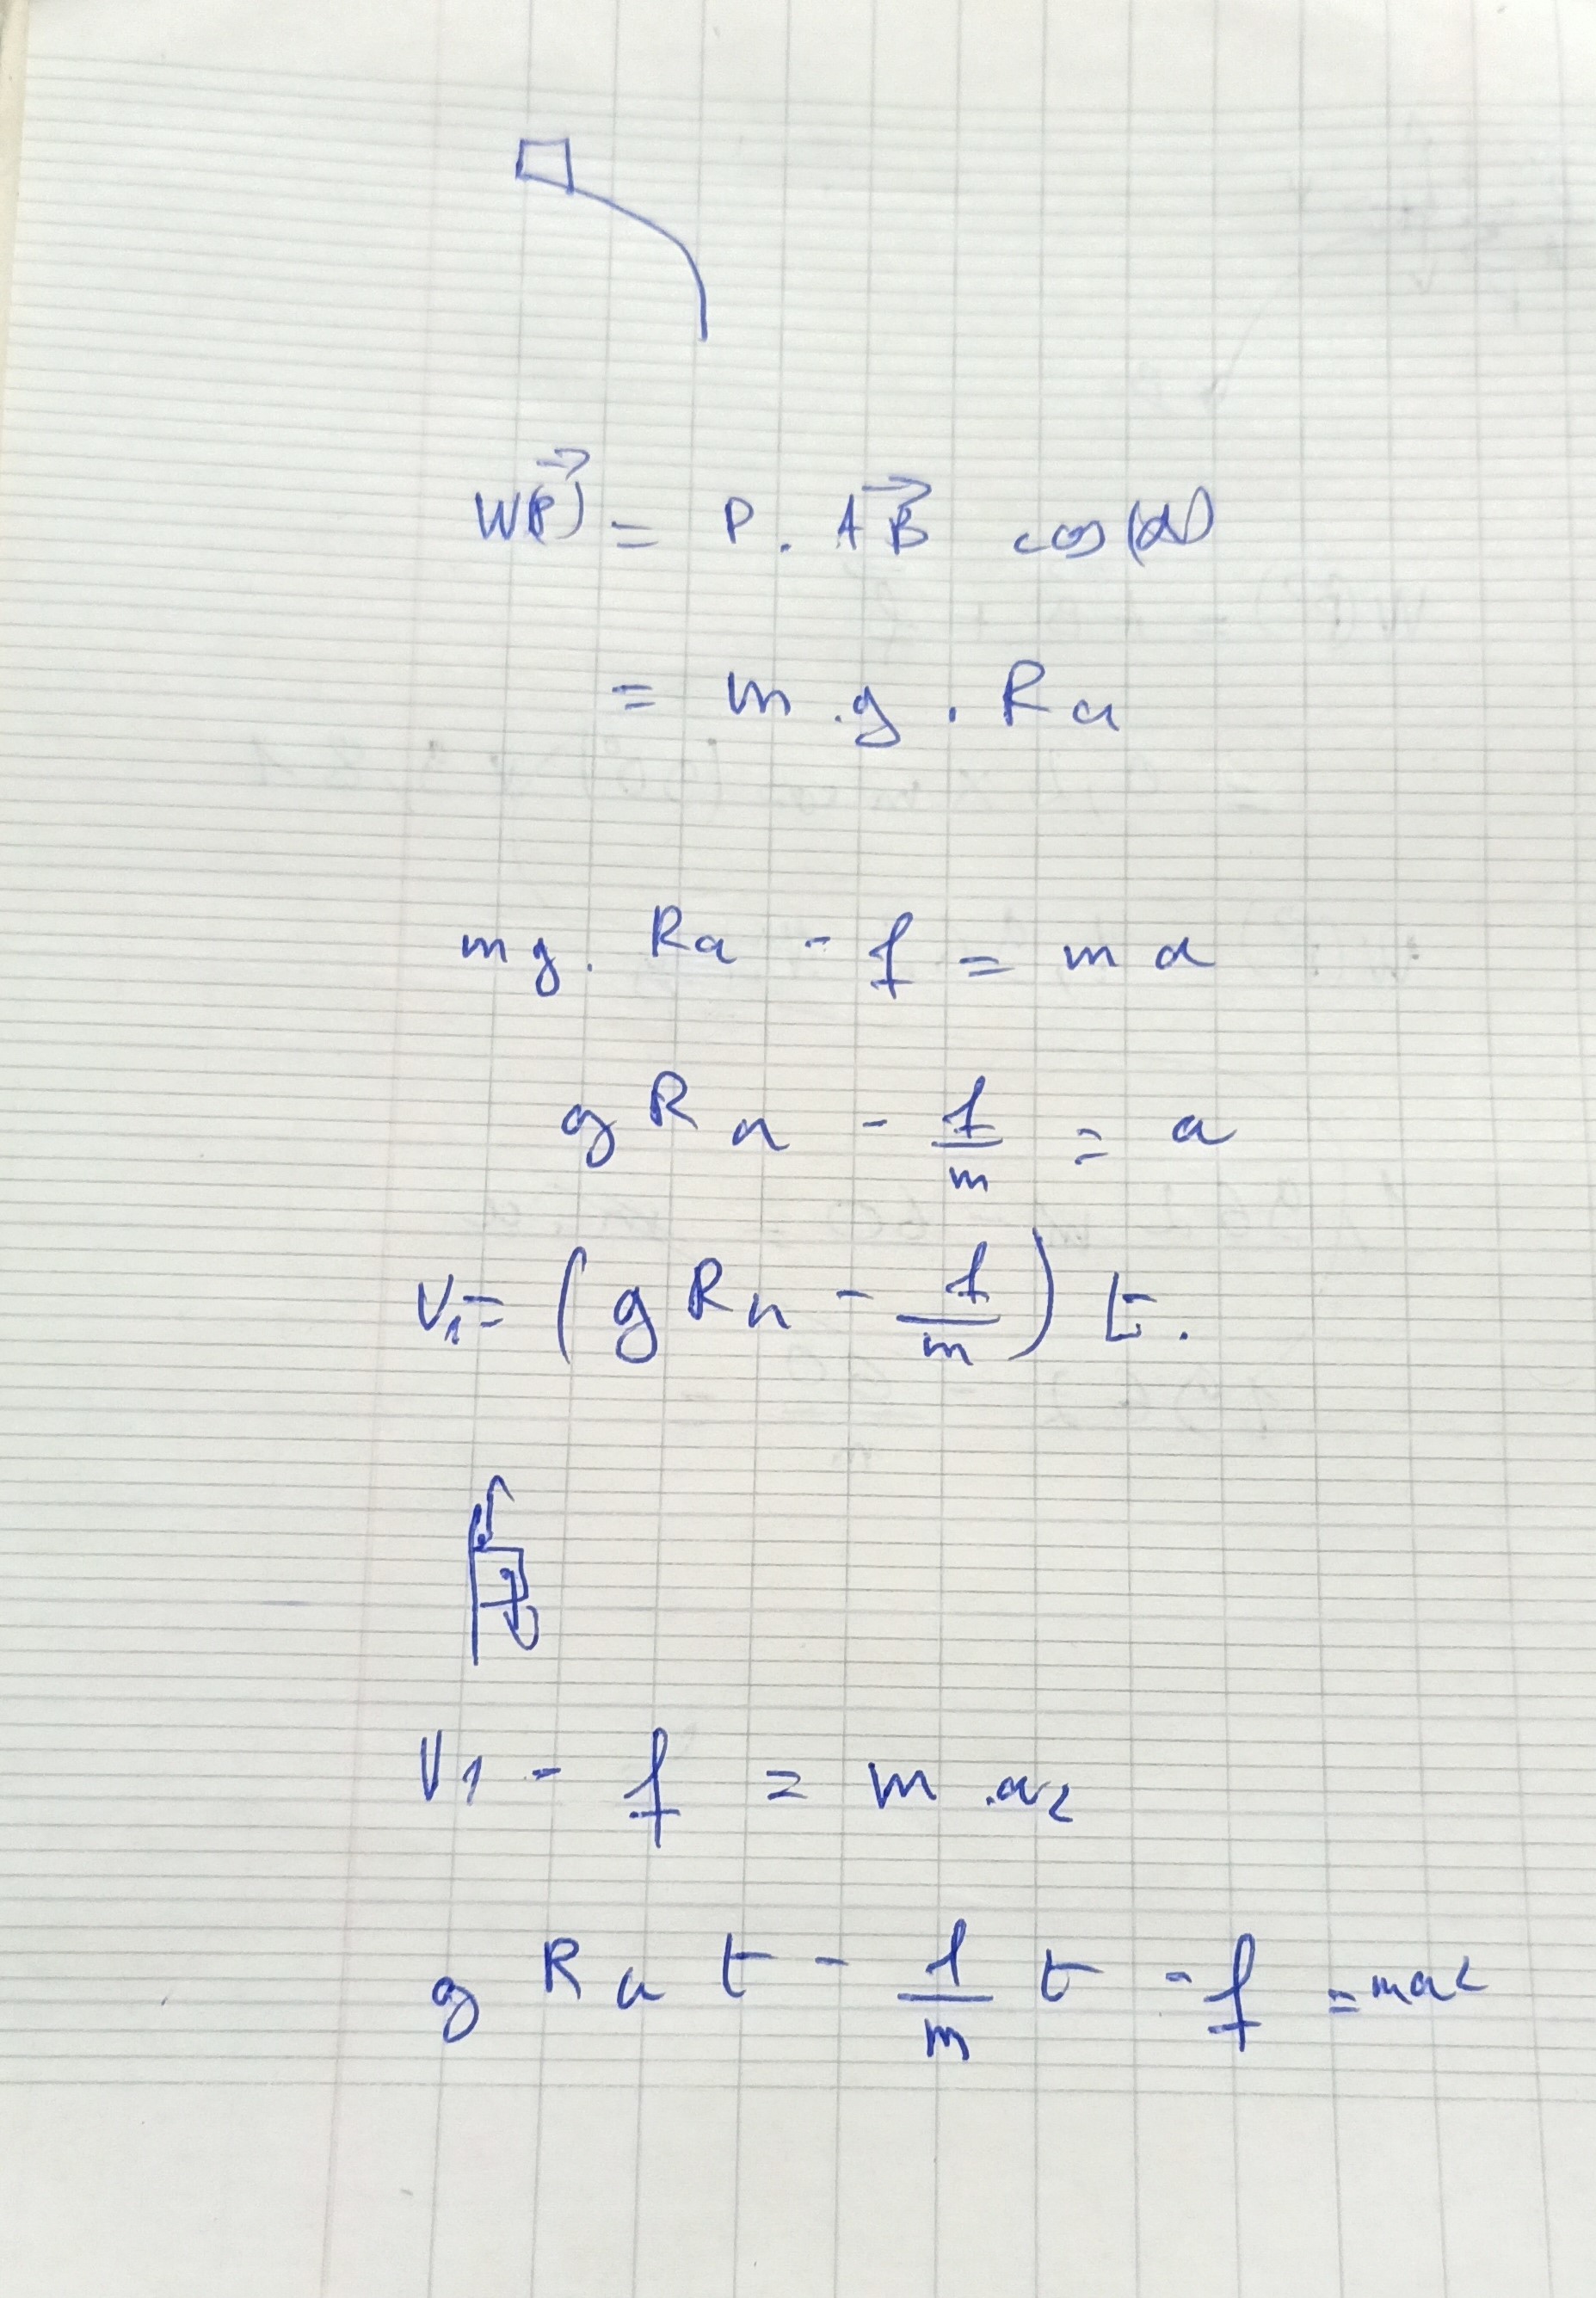 W(P⃗) = P . AB⃗ cos(α)
= m . g . Ra
mg . Ra - f = m a
g R a - f/m = a
V₁ = (g R a - f/m) t .
V1 - f = m . a₂
g R a t - f/m t - f = ma₂